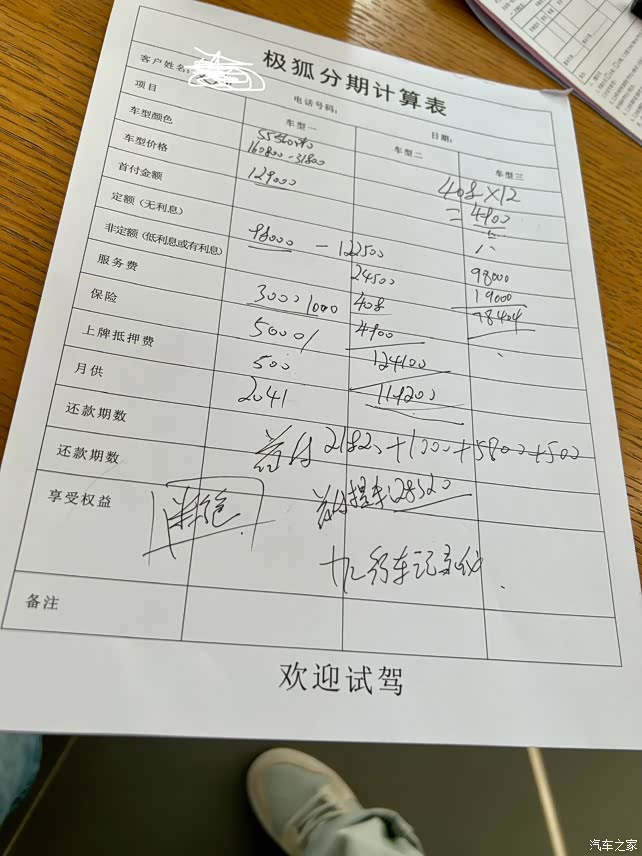 极狐分期计算表
客户姓名：
电话号码：
日期：
项目 车型一 车型二 车型三
车型颜色
车型价格 160800-31800
408×12
首付金额 129000
=4900
定额（无利息）
非定额（低利息或有利息） 98000 - 122500
服务费 24500 98000
保险 3000 1000 408 19000
78404
上牌抵押费 5000 4900
月供 500 124100
还款期数 2041 119200
还款期数 首付
享受权益
提车 28320
行车记录仪
备注
欢迎试驾
汽车之家